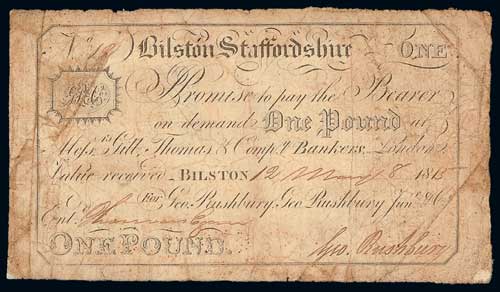 No 12 Bilston Staffordshire ONE
I Promise to pay the Bearer
on demand One Pound at
Messrs Gill, Thomas & Compy Bankers London
Value received BILSTON 12 May 1815
For Geo. Rushbury, Geo. Rushbury Junr & Co
Entd Thomas
ONE POUND. Geo. Rushbury